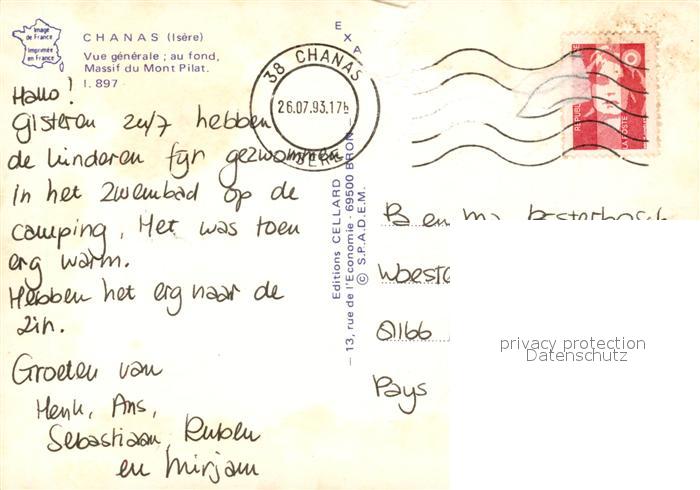 Image
de France
Imprimée
en France
CHANAS (Isère)
Vue générale ; au fond,
Massif du Mont Pilat.
I. 897
EXA
38 CHANAS
26.07.93.17h
ISERE
REPUBLIQUE
LA POSTE
Hallo!
Gisteren 24/7 hebben
de kinderen fyn gezwommen
in het zwembad op de
camping. Het was toen
erg warm.
Hebben het erg naar de
zin.
Groeten van
Henk, Ans,
Sebastiaan, Ruben
en Mirjam
Editions CELLARD
— 13, rue de l'Economie - 69500 BRON —
© S.P.A.D.E.M.
Pa en Ma
Woeste
Pays
privacy protection
Datenschutz